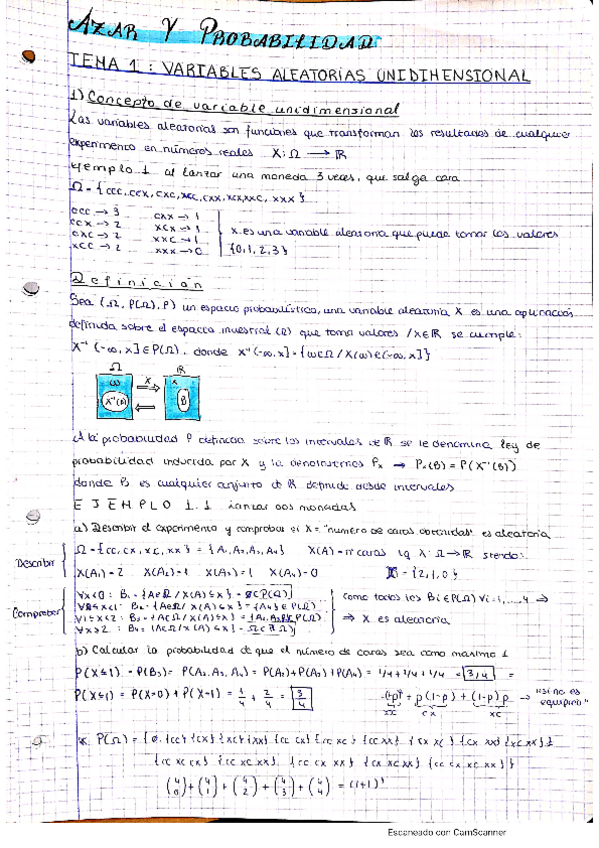 AZAR Y PROBABILIDAD
TEMA 1: VARIABLES ALEATORIAS UNIDIMENSIONAL
1) Concepto de variable unidimensional
Las variables aleatorias son funciones que transforman los resultados de cualquier
experimento en números reales X: Ω → ℝ
Ejemplo 1 al lanzar una moneda 3 veces, que salga cara
Ω = {ccc, ccx, cxc, xcc, cxx, xcx, xxc, xxx}
ccc → 3 cxx → 1
ccx → 2 xcx → 1
cxc → 2 xxc → 1
xcc → 2 xxx → 0
X es una variable aleatoria que puede tomar los valores
{0,1,2,3}
Definición
Sea (Ω, P(Ω), P) un espacio probabilístico, una variable aleatoria X es una aplicación
definida sobre el espacio muestral (Ω) que toma valores /x∈ℝ se cumple:
X⁻¹(-∞, x] ∈ P(Ω), donde X⁻¹(-∞, x] = {ω∈Ω / X(ω)∈(-∞, x]}
Ω ℝ
ω X x
X⁻¹(B) B
A la probabilidad P definida sobre los intervalos de ℝ se le denomina ley de
probabilidad inducida por X y la denotaremos Pₓ → Pₓ(B) = P(X⁻¹(B))
donde B es cualquier conjunto de ℝ definido desde intervalos
EJEMPLO 1.1 lanzar dos monedas
a) Describir el experimento y comprobar si X = "numero de caras obtenidas" es aleatoria
Describir
Ω = {cc, cx, xc, xx} = {A₁, A₂, A₃, A₄} X(A) = nº caras tq X: Ω → ℝ siendo:
X(A₁) = 2 X(A₂) = 1 X(A₃) = 1 X(A₄) = 0 = {2,1,0}
Comprobar
∀x<0: B₁ = {A∈Ω / X(A) ≤ x} = ∅∈P(Ω)
∀0≤x<1: B₂ = {A∈Ω / X(A) ≤ x} = {A₄} ∈ P(Ω)
∀1≤x<2: B₃ = {A∈Ω / X(A) ≤ x} = {A₂, A₃, A₄} ∈ P(Ω)
∀x≥2: B₄ = {A∈Ω / X(A) ≤ x} = Ω ∈ P(Ω)
como todos los Bi ∈ P(Ω) ∀i=1,...,4 ⇒
⇒ X es aleatoria
b) Calcular la probabilidad de que el número de caras sea como maximo 1
P(X≤1) = P(B₃) = P(A₂, A₃, A₄) = P(A₂)+P(A₃)+P(A₄) = 1/4 + 1/4 + 1/4 = 3/4 =
P(X≤1) = P(X=0) + P(X=1) = 1/4 + 2/4 = 3/4
(1-p)² + p(1-p) + (1-p)p → "si no es
xx cx xc equiprob"
P(Ω) = {∅, {cc} {cx} {xc} {xx} {cc cx} {cc xc} {cc xx} {cx xc} {cx xx} {xc xx}
{cc xc cx} {cc xc xx} {cc cx xx} {cx xc xx} {cc cx xc xx}}
(4 0) + (4 1) + (4 2) + (4 3) + (4 4) = (1+1)⁴
Escaneado con CamScanner